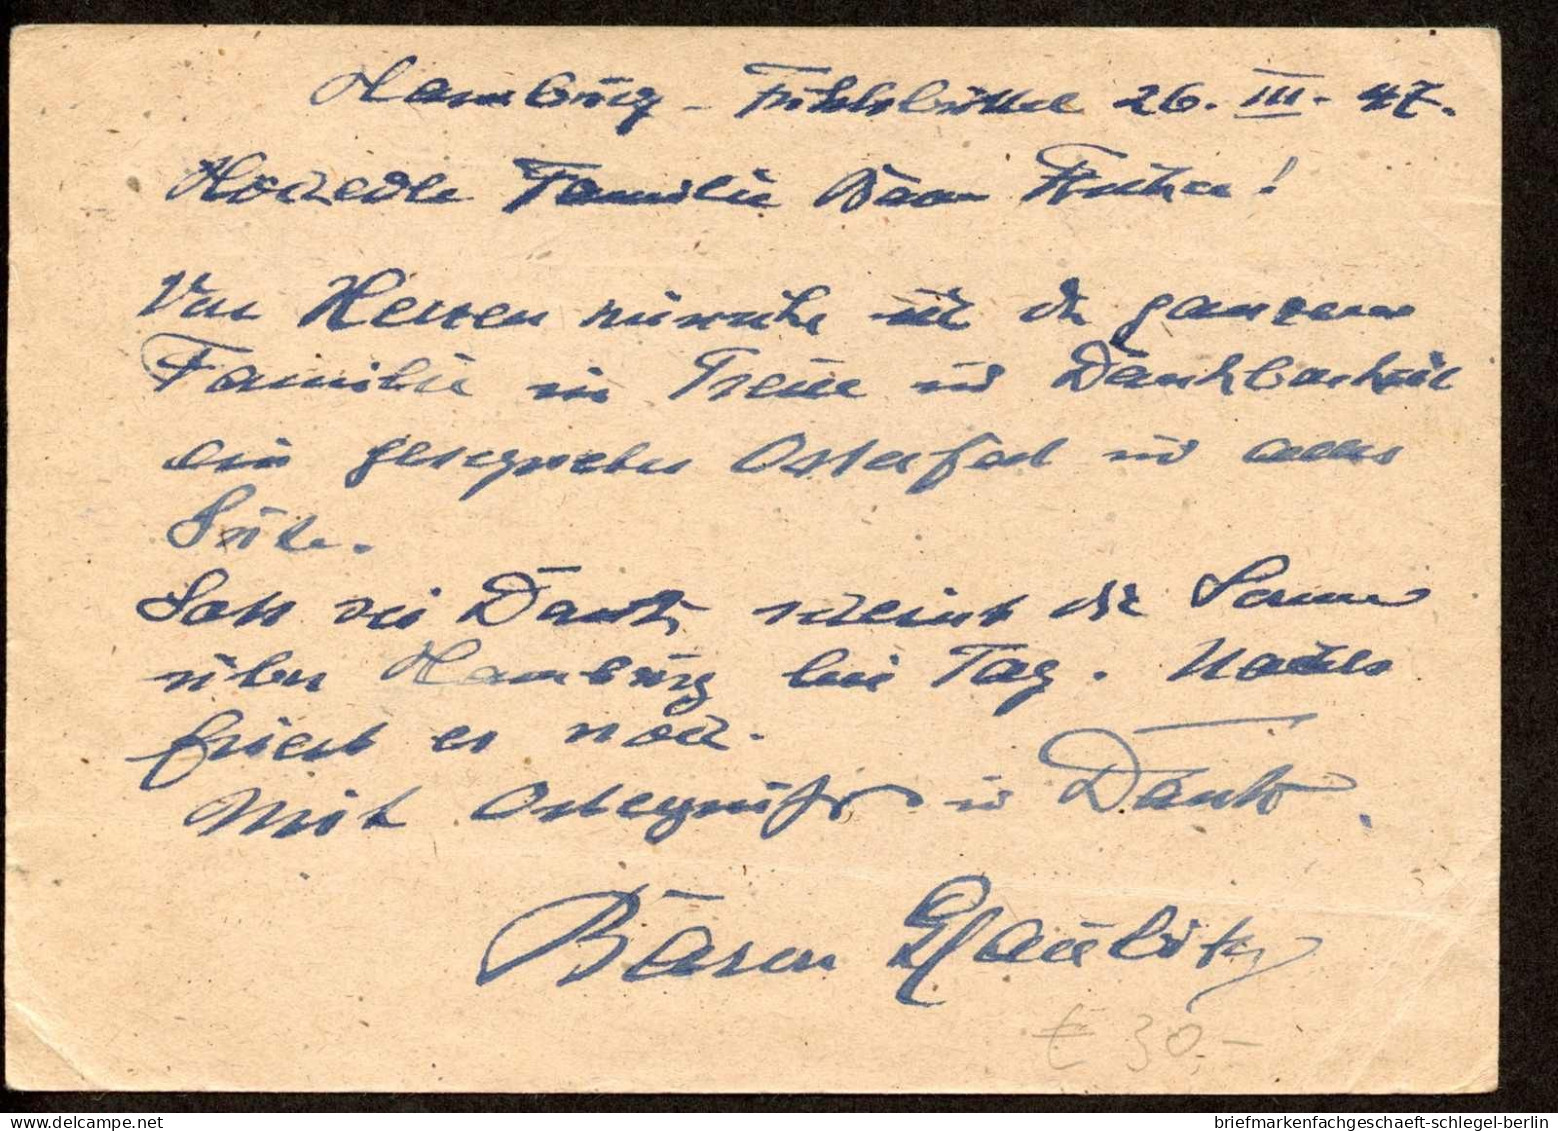 Hamburg - Fuhlsbüttel 26. III. 47.
Hochedle Familie
Von Herzen wünsche ich der ganzen
Familie in Treue und Dankbarkeit
ein gesegnetes Osterfest und alles
Gute.
Gott sei Dank, scheint die Sonne
über Hamburg bei Tag. Nachts
friert es noch.
Mit Ostergruß u Dank.
Baron Glaubitz
€ 30,-
briefmarkenfachgeschaeft-schlegel-berlin